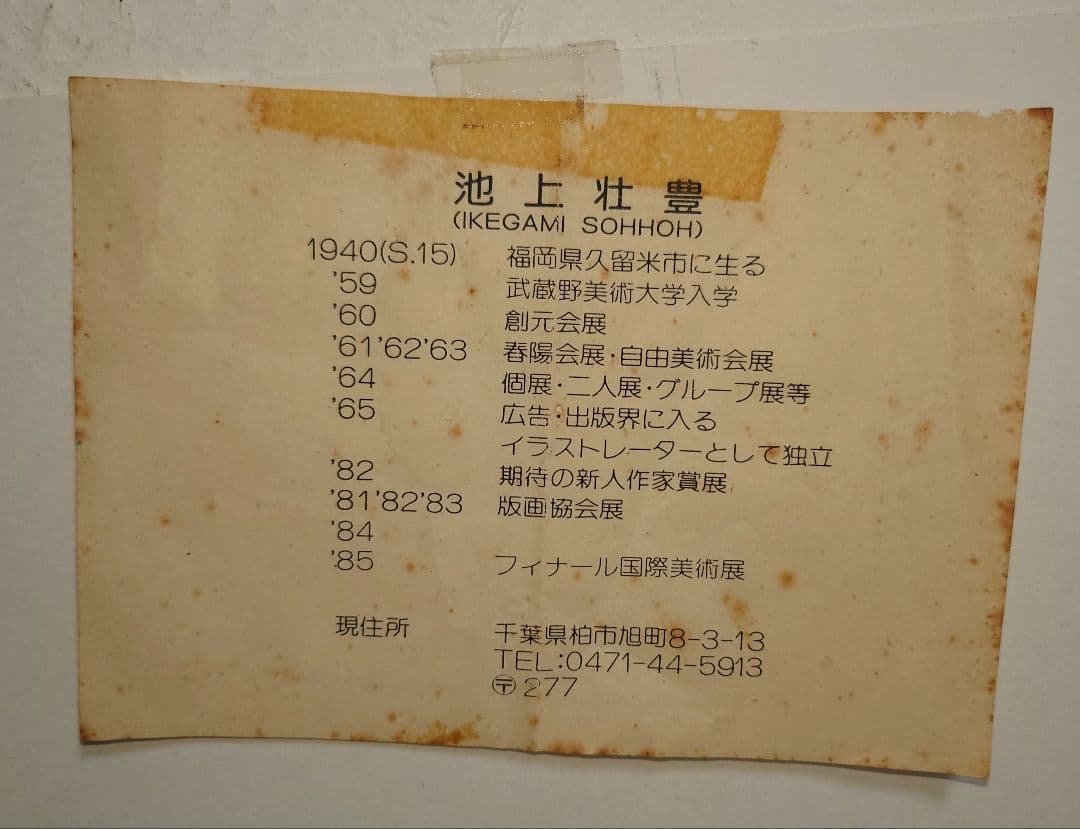 池上壮豊
(IKEGAMI SOHHOH)
1940(S.15) 福岡県久留米市に生る
'59 武蔵野美術大学入学
'60 創元会展
'61'62'63 春陽会展・自由美術会展
'64 個展・二人展・グループ展等
'65 広告・出版界に入る
イラストレーターとして独立
'82 期待の新人作家賞展
'81'82'83 版画協会展
'84
'85 フィナール国際美術展
現住所 千葉県柏市旭町8-3-13
TEL:0471-44-5913
〶277